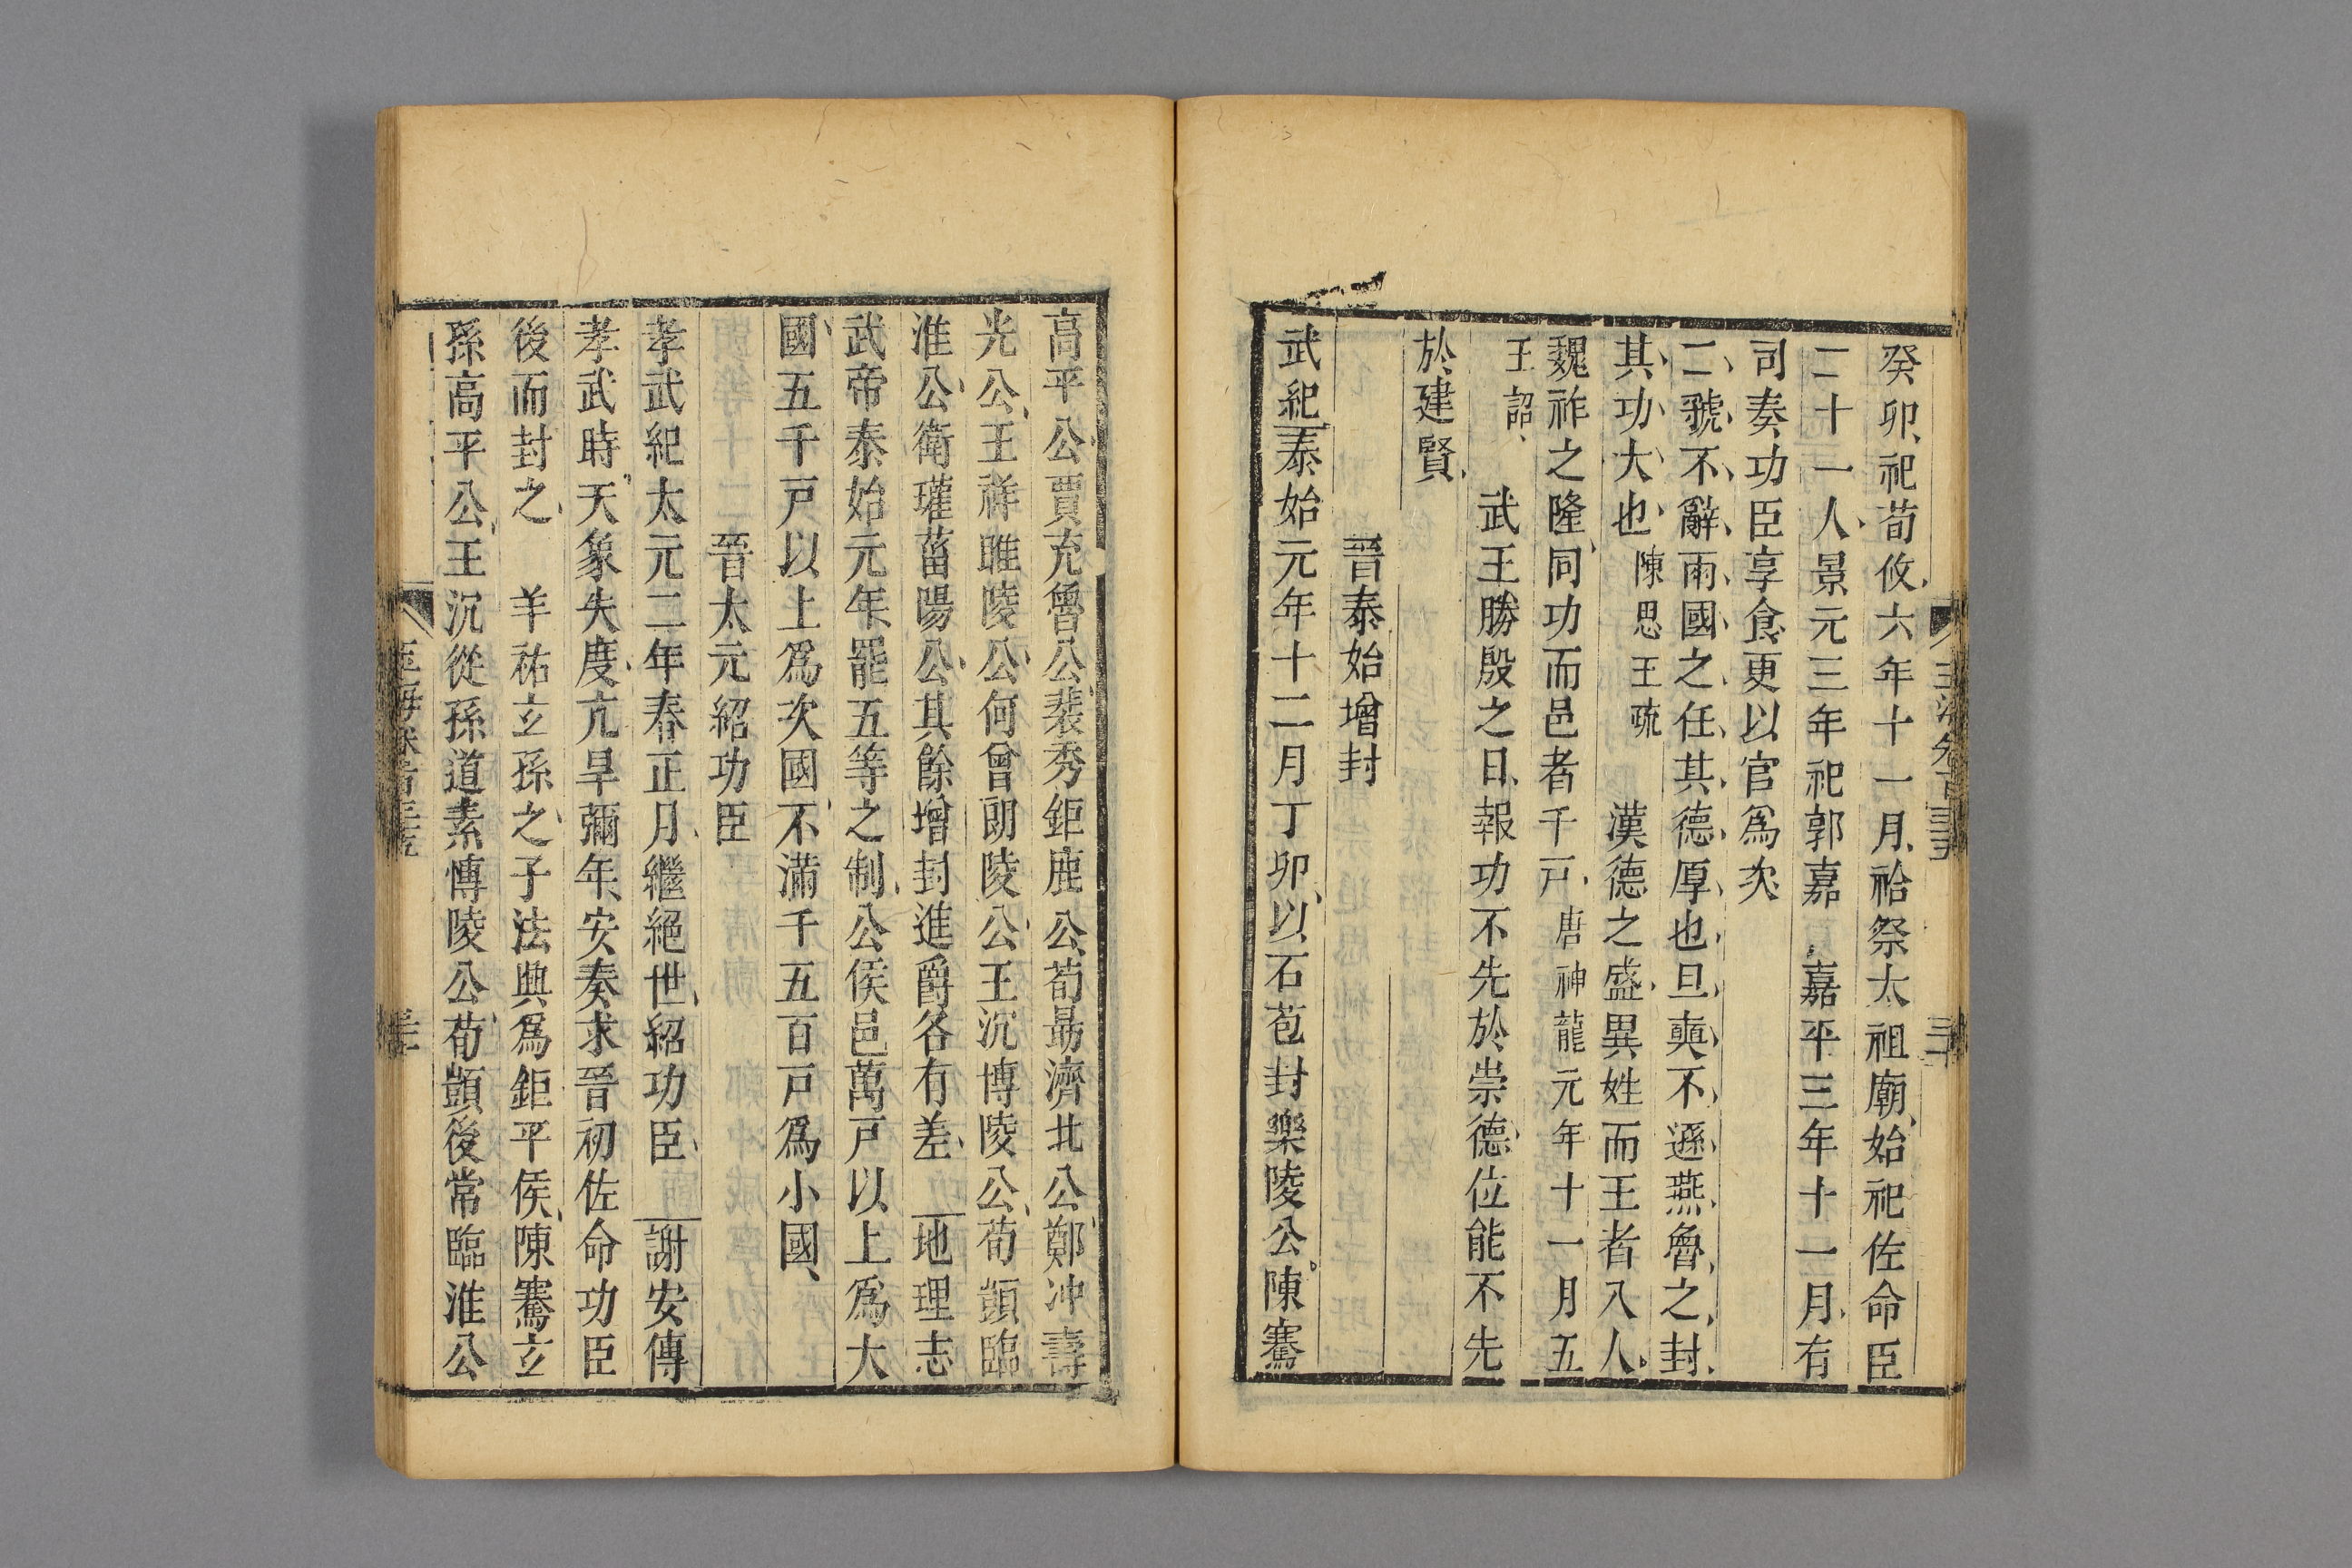 癸卯、祀荀攸、六年十一月、祫祭太祖廟、始祀佐命臣
二十一人、景元三年祀郭嘉　嘉平三年十一月、有
司奏、功臣享食、更以官爲次
二、虢、不、辭、兩、國、之、任、其、德、厚、也、旦、奭、不、遜、燕、魯、之、封、
其、功、大、也、陳思王疏　漢德之盛、異姓而王者八人、
魏祚之隆、同功而邑者千戸、唐神龍元年十一月五
王詔、　武王勝殷之日、報功不先於崇德、位能不先
於建賢、
晉泰始增封
武紀泰始元年十二月丁卯、以石苞封樂陵公、陳騫
高平公、賈充魯公、裴秀鉅鹿公、荀勗濟北公、鄭冲壽
光公、王祥睢陵公、何曾朗陵公、王沉博陵公、荀顗臨
淮公、衛瓘菑陽公、其餘增封進爵各有差、地理志
武帝泰始元年、罷五等之制、公侯邑萬戸以上爲大
國、五千戸以上爲次國、不滿千五百戸爲小國、
晉太元紹功臣
孝武紀太元二年春正月、繼絕世、紹功臣、　謝安傳
孝武時、天象失度、亢旱彌年、安奏求晉初佐命功臣
後而封之、　羊祐立孫之子法興爲鉅平侯、陳騫立
孫高平公、王沉從孫道素愽陵公、荀顗後常臨淮公